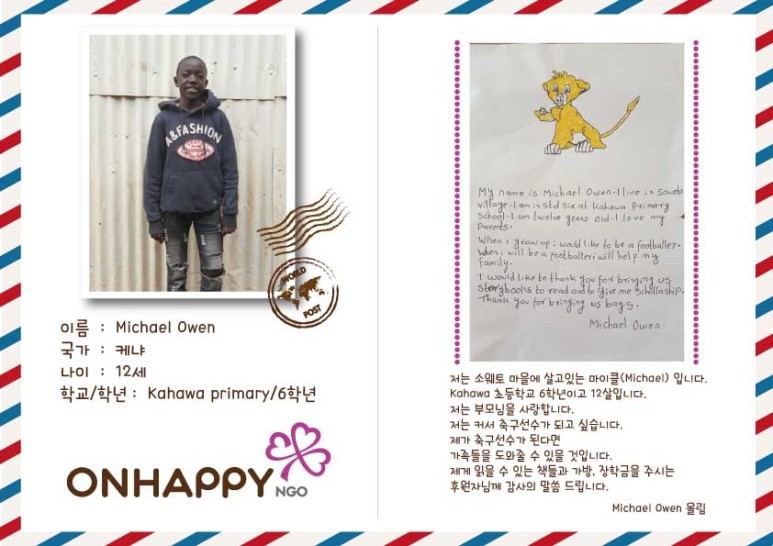 A&FASHION
WORLD
POST
이름 : Michael Owen
국가 : 케냐
나이 : 12세
학교/학년 : Kahawa primary/6학년
ONHAPPY
NGO
My name is Michael Owen. I live in Soweto
village. I am in std six at Kahawa Primary
School. I am twelve years old. I love my
Parents.
When i grow up i would like to be a footballer.
When i will be a footballer i will help my
family.
I would like to thank you for bringing us
Storybooks to read and to give me schillaship.
Thank you for bringing us bags.
Michael Owen.
저는 소웨토 마을에 살고있는 마이클(Michael) 입니다.
Kahawa 초등학교 6학년이고 12살입니다.
저는 부모님을 사랑합니다.
저는 커서 축구선수가 되고 싶습니다.
제가 축구선수가 된다면
가족들을 도와줄 수 있을 것입니다.
제게 읽을 수 있는 책들과 가방, 장학금을 주시는
후원자님께 감사의 말씀 드립니다.
Michael Owen 올림